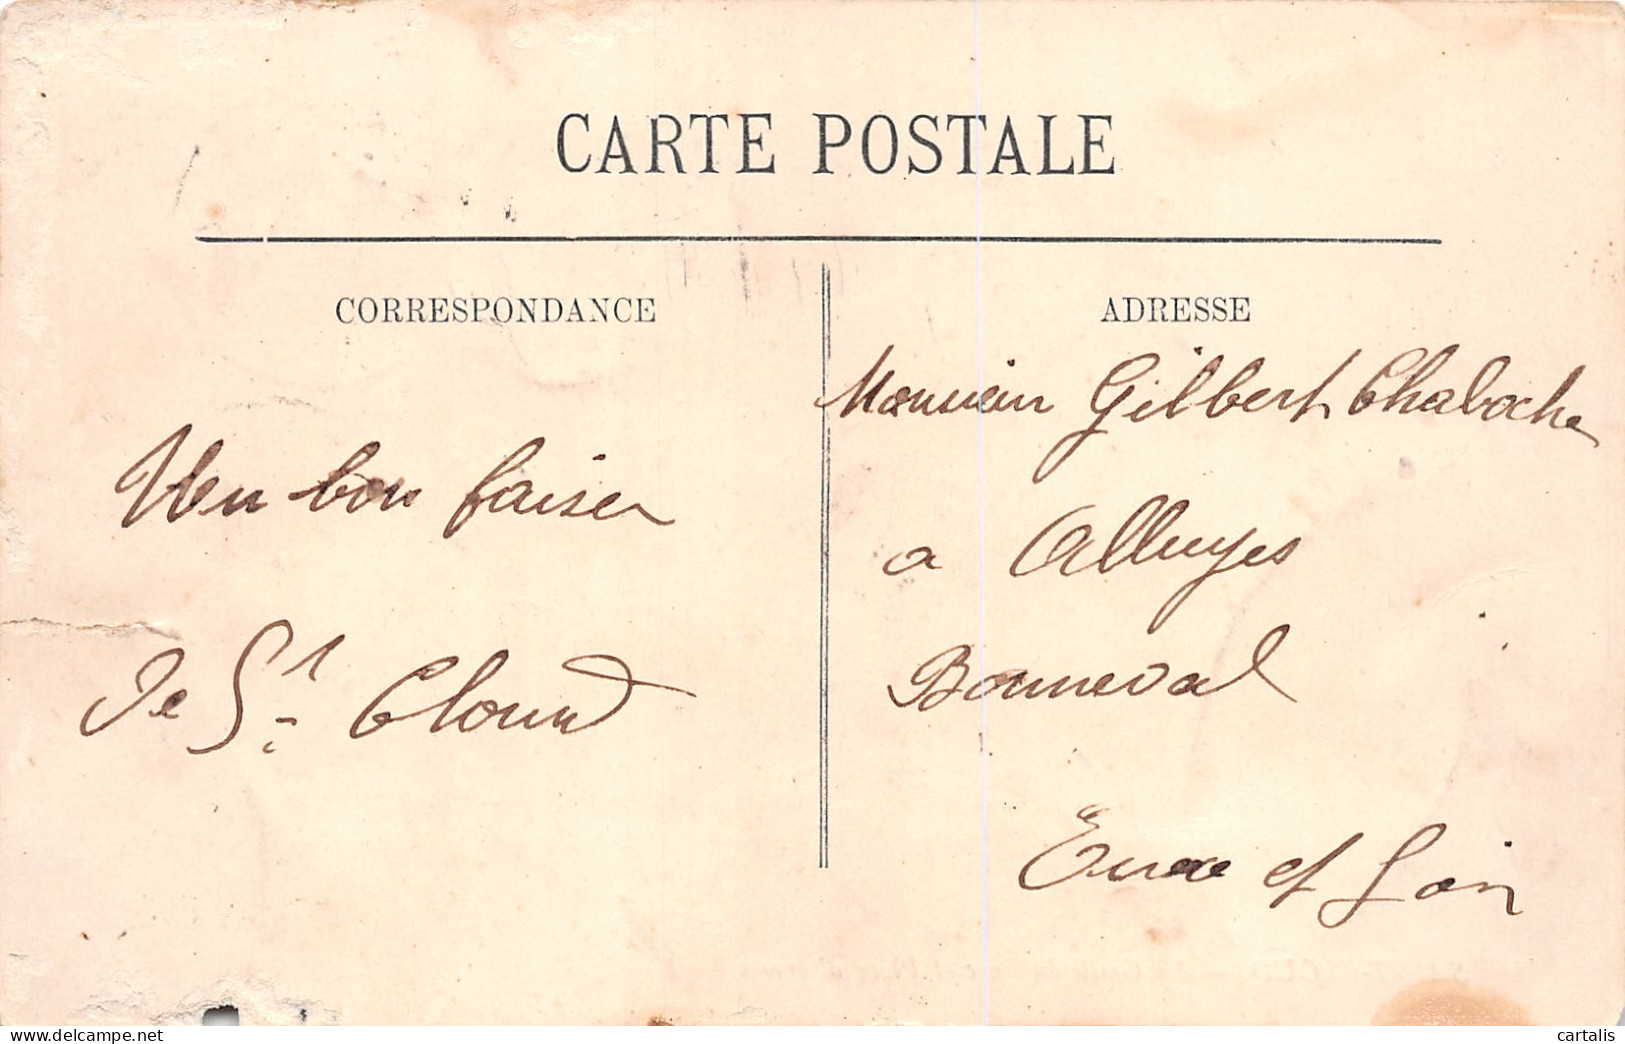 CARTE POSTALE
CORRESPONDANCE
Un bon baiser
de St Cloud
ADRESSE
Monsieur Gilbert Chaboche
a Alluyes
Bonneval
Eure et Loir
cartalis
www.delcampe.net